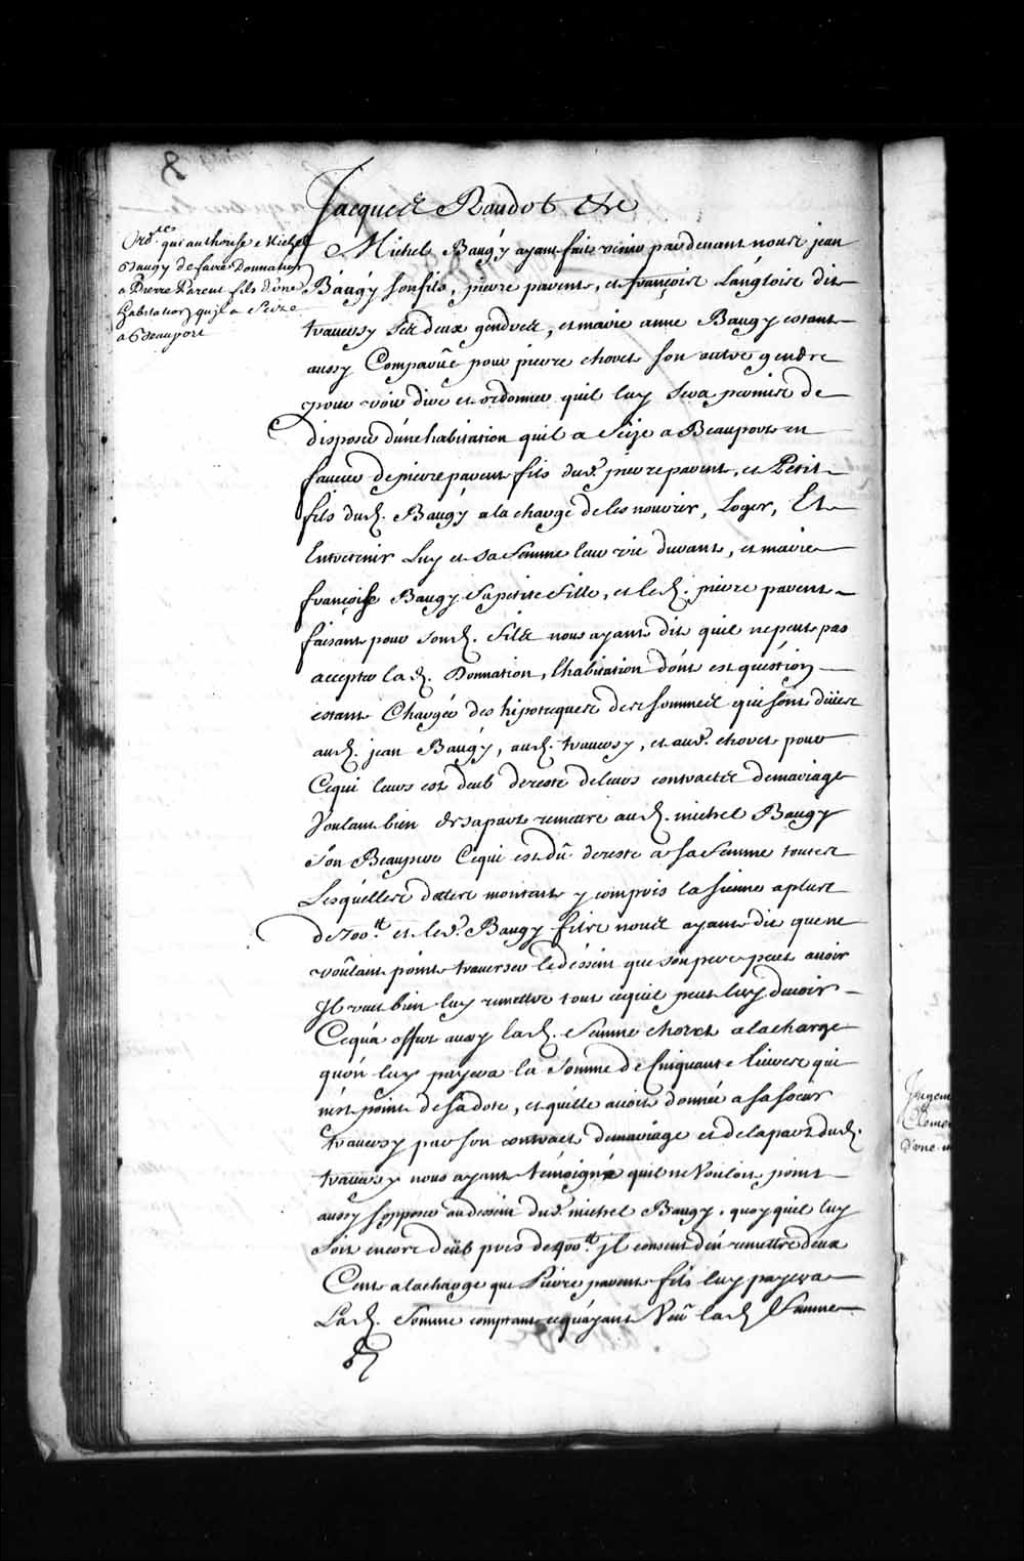 8
Jacques Raudot &re
Ord.ce qui authorise Michel
Baugy de faire Donnation
a Pierre Parent fils d'une
habitation qu'jl a scize
a Beauport
Michel Baugy ayant fait venir pardevant nous jean
Baugy son fils, pierre parent, et françois Langlois dit
traversy ses deux gendres, et marie anne Baugy estant
aussy Comparüe pour pierre choret son autre gendre
pour voir dire et ordonner quil luy sera permis de
disposer d'une habitation quil a scize a Beauport en
faveur de pierre parent fils dud. pierre parent, et Petit
fils dud. Baugy a la charge de les nourir, Loger, Et
Entretenir Luy et sa femme leur vie durant, et marie
françoise Baugy sa petite fille, et led. pierre parent
faisant pour sond. fils nous ayant dit quil ne peut pas
accepter lad. Donnation, l'habitation dont est question
estant Chargée des hipoteques des sommes qui sont düies
aud. jean Baugy, aud. traversy, et aud. choret pour
Ce qui leurs est deub de reste de leurs contracts de mariage
Voulant bien de sa part remettre aud. michel Baugy
son Beaupere Ce qui est dû de reste a sa femme toutes
Lesquelles dettes montent y compris la sienne a plus
de 700.tt et led. Baugy fils nous ayant dit que ne
voulant point traverser le dessein que son pere peut avoir
Jl veut bien luy remettre tout ce quil peut luy devoir
Ce qu'a offert aussy lad. femme choret a la charge
qu'on luy payera la somme de Cinquante livres qui
n'est point de sa dote, et qu'elle avoit donnée a sa soeur
traversy par son contract de mariage et de la part dud.
traversy nous ayant témoigné quil ne Vouloit point
aussy s'opposer au dessein dud. michel Baugy, quoy quil luy
soit encore deüb pres de 400.tt jl consent d'en remettre deux
Cens a la charge que Pierre parent fils luy payera
Lad. somme comptant ce qu'ayant Veu lad. femme